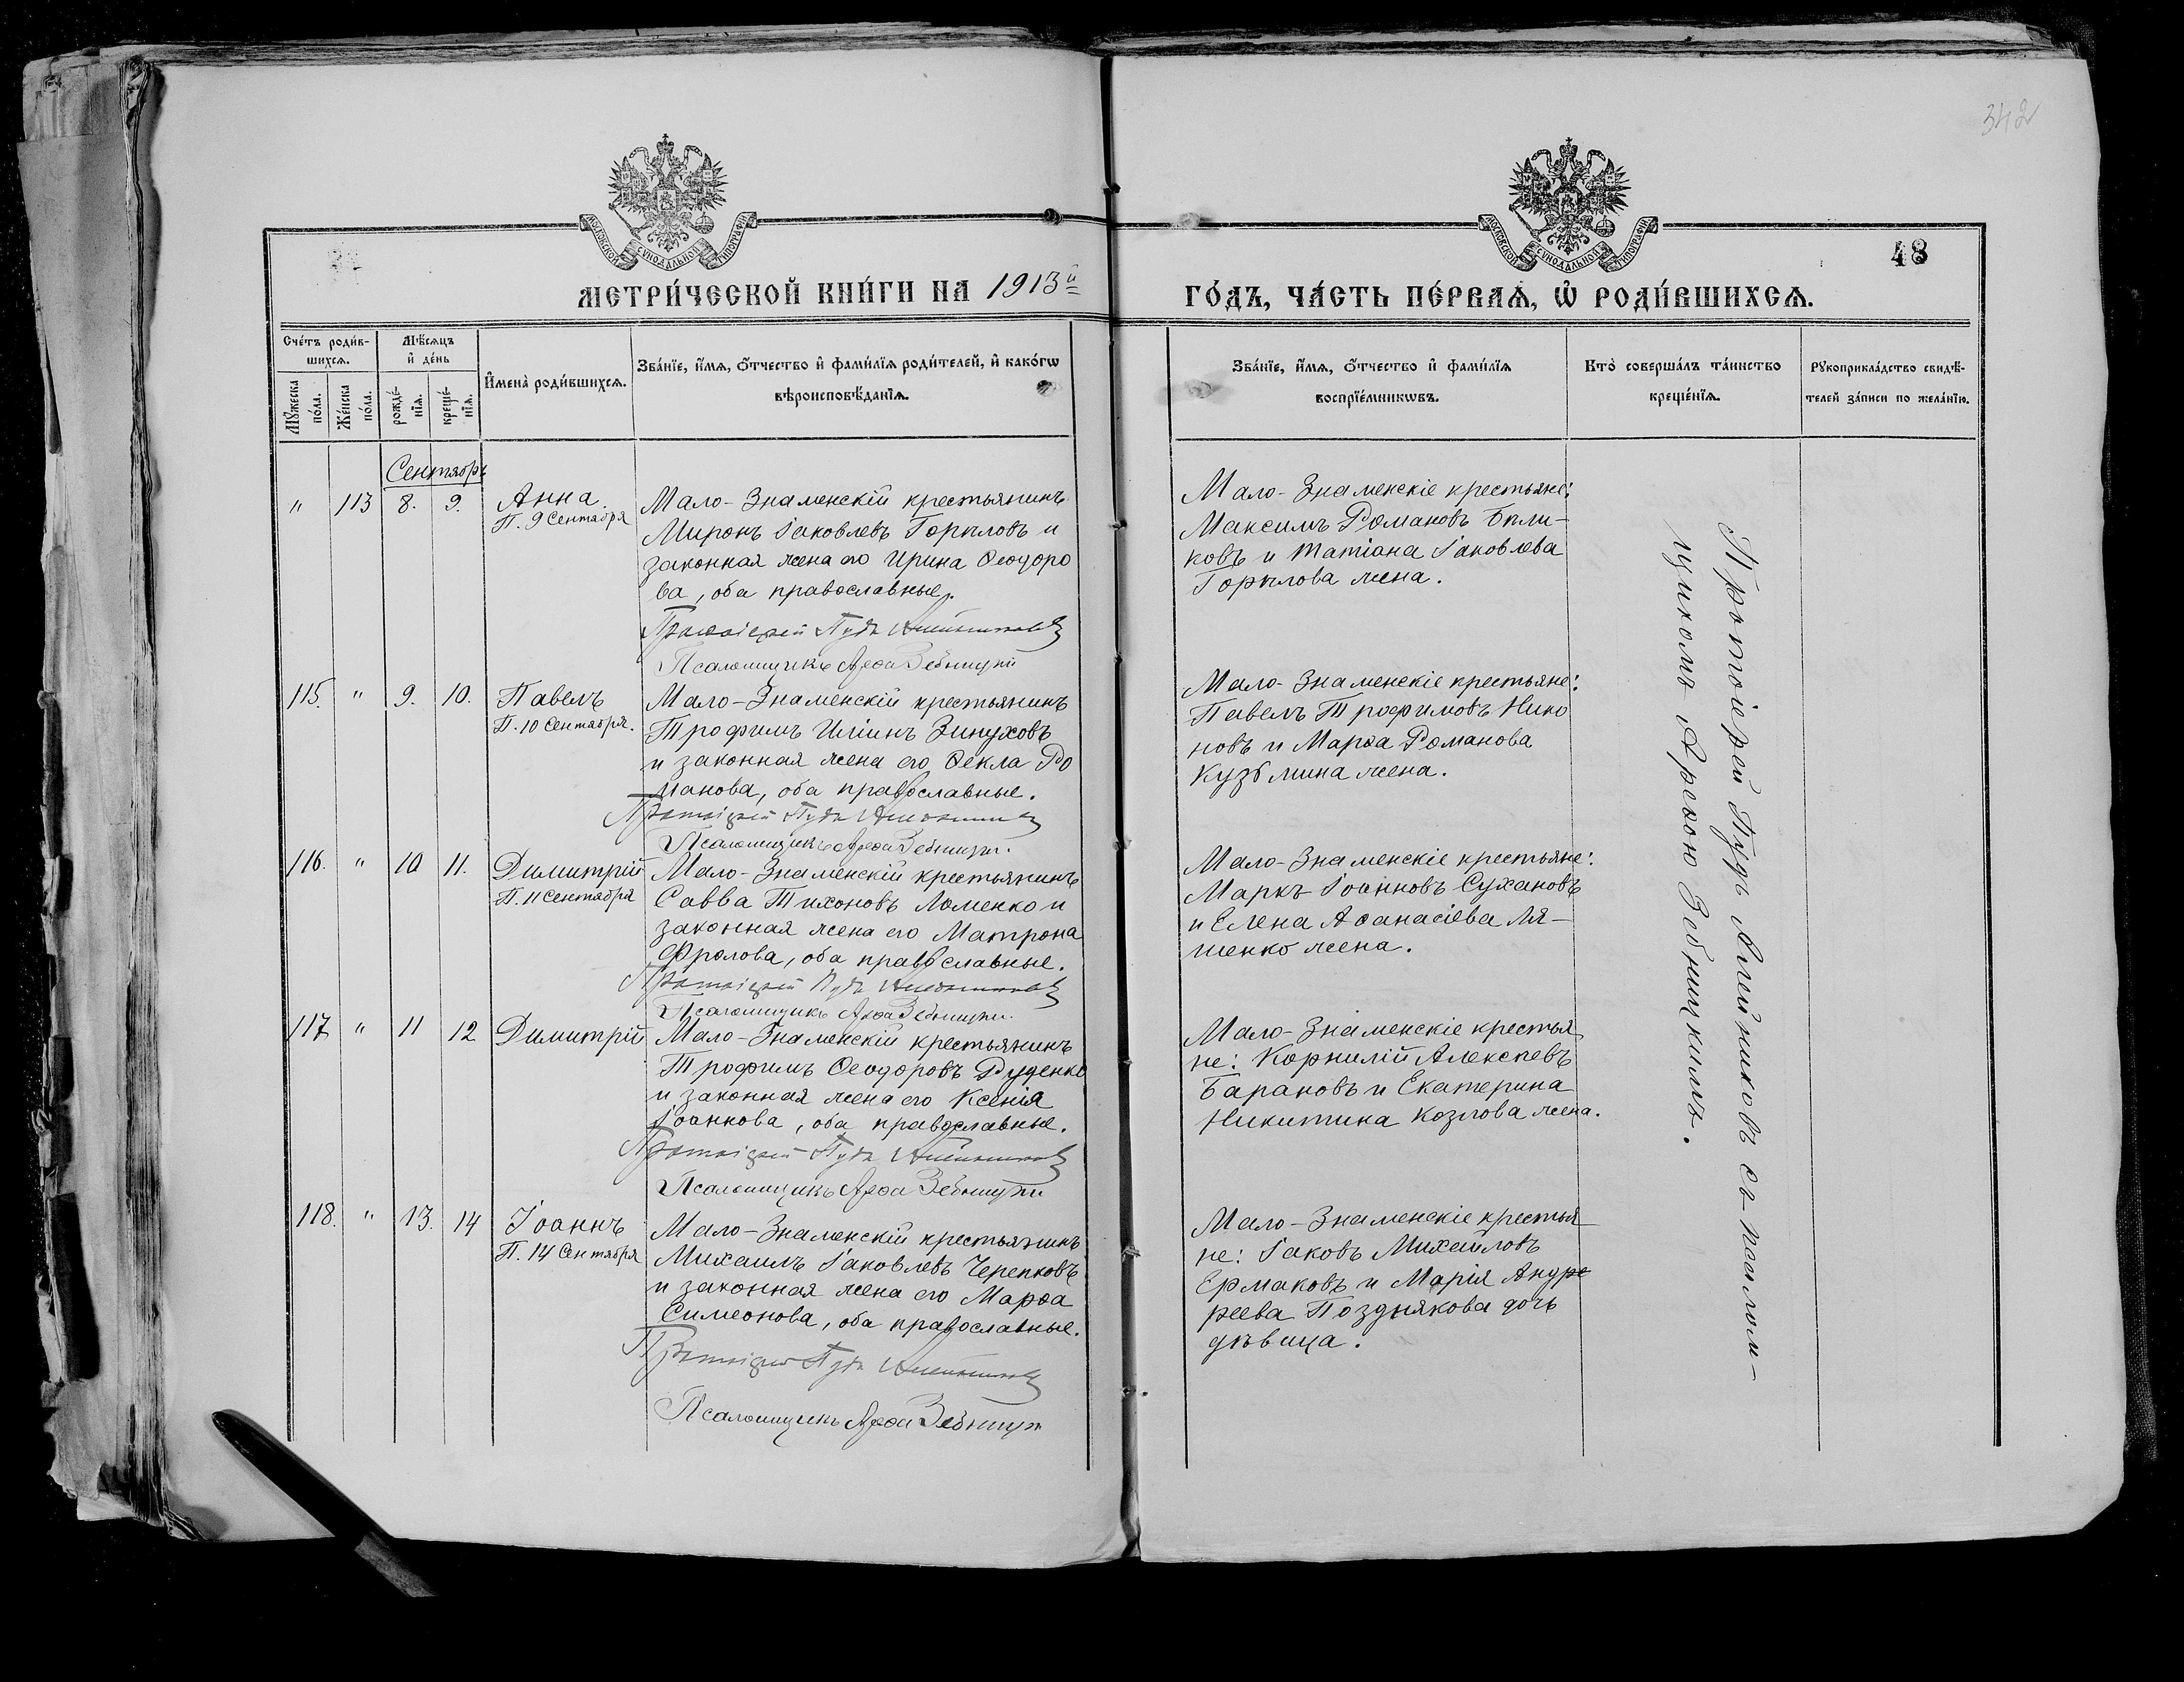 342
МОСКОВСКОЙ СѴНОДАЛЬНОЙ ТИПОГРАФІИ
МОСКОВСКОЙ СѴНОДАЛЬНОЙ ТИПОГРАФІИ
48
МЕТРИ́ЧЕСКОЙ КНИ́ГИ НА 1913й
ГО́ДЪ, ЧА́СТЬ ПЕ́РВАѦ, Ѡ҆ РОДИ́ВШИХСѦ.
Сче́тъ роди́в-
шихсѧ.
Мѣ́сѧцъ
и҆ де́нь
Мꙋ́жеска
по́ла.
Же́нска
по́ла.
рожде́-
нїѧ.
креще́-
нїѧ.
И҆мена̀ роди́вшихсѧ.
Зва́нїе, и҆́мѧ, ѻ҆́тчество и҆ фами́лїѧ роди́телей, и҆ како́гѡ
вѣроисповѣ́данїѧ.
Зва́нїе, и҆́мѧ, ѻ҆́тчество и҆ фами́лїѧ
воспрїе́мникѡвъ.
Кто̀ соверша́лъ та́инство
креще́нїѧ.
Рꙋкоприкла́дство свидѣ́-
телей за́писи по жела́нїю.
Сентябрь
" 113 8. 9. Анна
П. 9 Сентября
Мало-Знаменскій крестьянинъ
Миронъ Іаковлевъ Горѣловъ и
законная жена его Ирина Ѳеодоро
ва, оба православные.
Протоіерей Пудъ Алейниковъ
Псаломщикъ Арѳа Зебницкій
Мало-Знаменскіе крестьяне:
Максимъ Романовъ Бѣли-
ковъ и Татіана Іаковлева
Горѣлова жена.
115. " 9. 10. Павелъ
П. 10 Сентября.
Мало-Знаменскій крестьянинъ
Трофимъ Иліинъ Зинуховъ
и законная жена его Ѳекла Ро
манова, оба православные.
Протоіерей Пудъ Алейниковъ
Псаломщикъ Арѳа Зебницкій.
Мало-Знаменскіе крестьяне:
Павелъ Трофимовъ Нико
новъ и Марѳа Романова
Кузьмина жена.
116. " 10 11. Димитрій
П. 11 Сентября
Мало-Знаменскій крестьянинъ
Савва Тихоновъ Ломенко и
законная жена его Матрона
Фролова, оба православные.
Протоіерей Пудъ Алейниковъ
Псаломщикъ Арѳа Зебницкій.
Мало-Знаменскіе крестьяне:
Маркъ Іоанновъ Сухановъ
и Елена Аѳанасіева Ля-
шенко жена.
117 " 11 12 Димитрій
Мало-Знаменскій крестьянинъ
Трофимъ Ѳеодоровъ Руденко
и законная жена его Ксенія
Іоаннова, оба православные.
Протоіерей Пудъ Алейниковъ
Псаломщикъ Арѳа Зебницкій
Мало-Знаменскіе крестья
не: Корнилій Алексѣевъ
Барановъ и Екатерина
Никитина Козлова жена.
118. " 13. 14 Іоаннъ
П. 14 Сентября
Мало-Знаменскій крестьянинъ
Михаилъ Іаковлевъ Черепковъ
и законная жена его Марѳа
Симеонова, оба православные.
Протоіерей Пудъ Алейниковъ
Псаломщикъ Арѳа Зебницкій
Мало-Знаменскіе крестья
не: Іаковъ Михайловъ
Ермаковъ и Марія Андре
реева Позднякова дочь
дѣвица.
Протоіерей Пудъ Алейниковъ съ псалом-
щикомъ Арѳою Зебницкимъ.